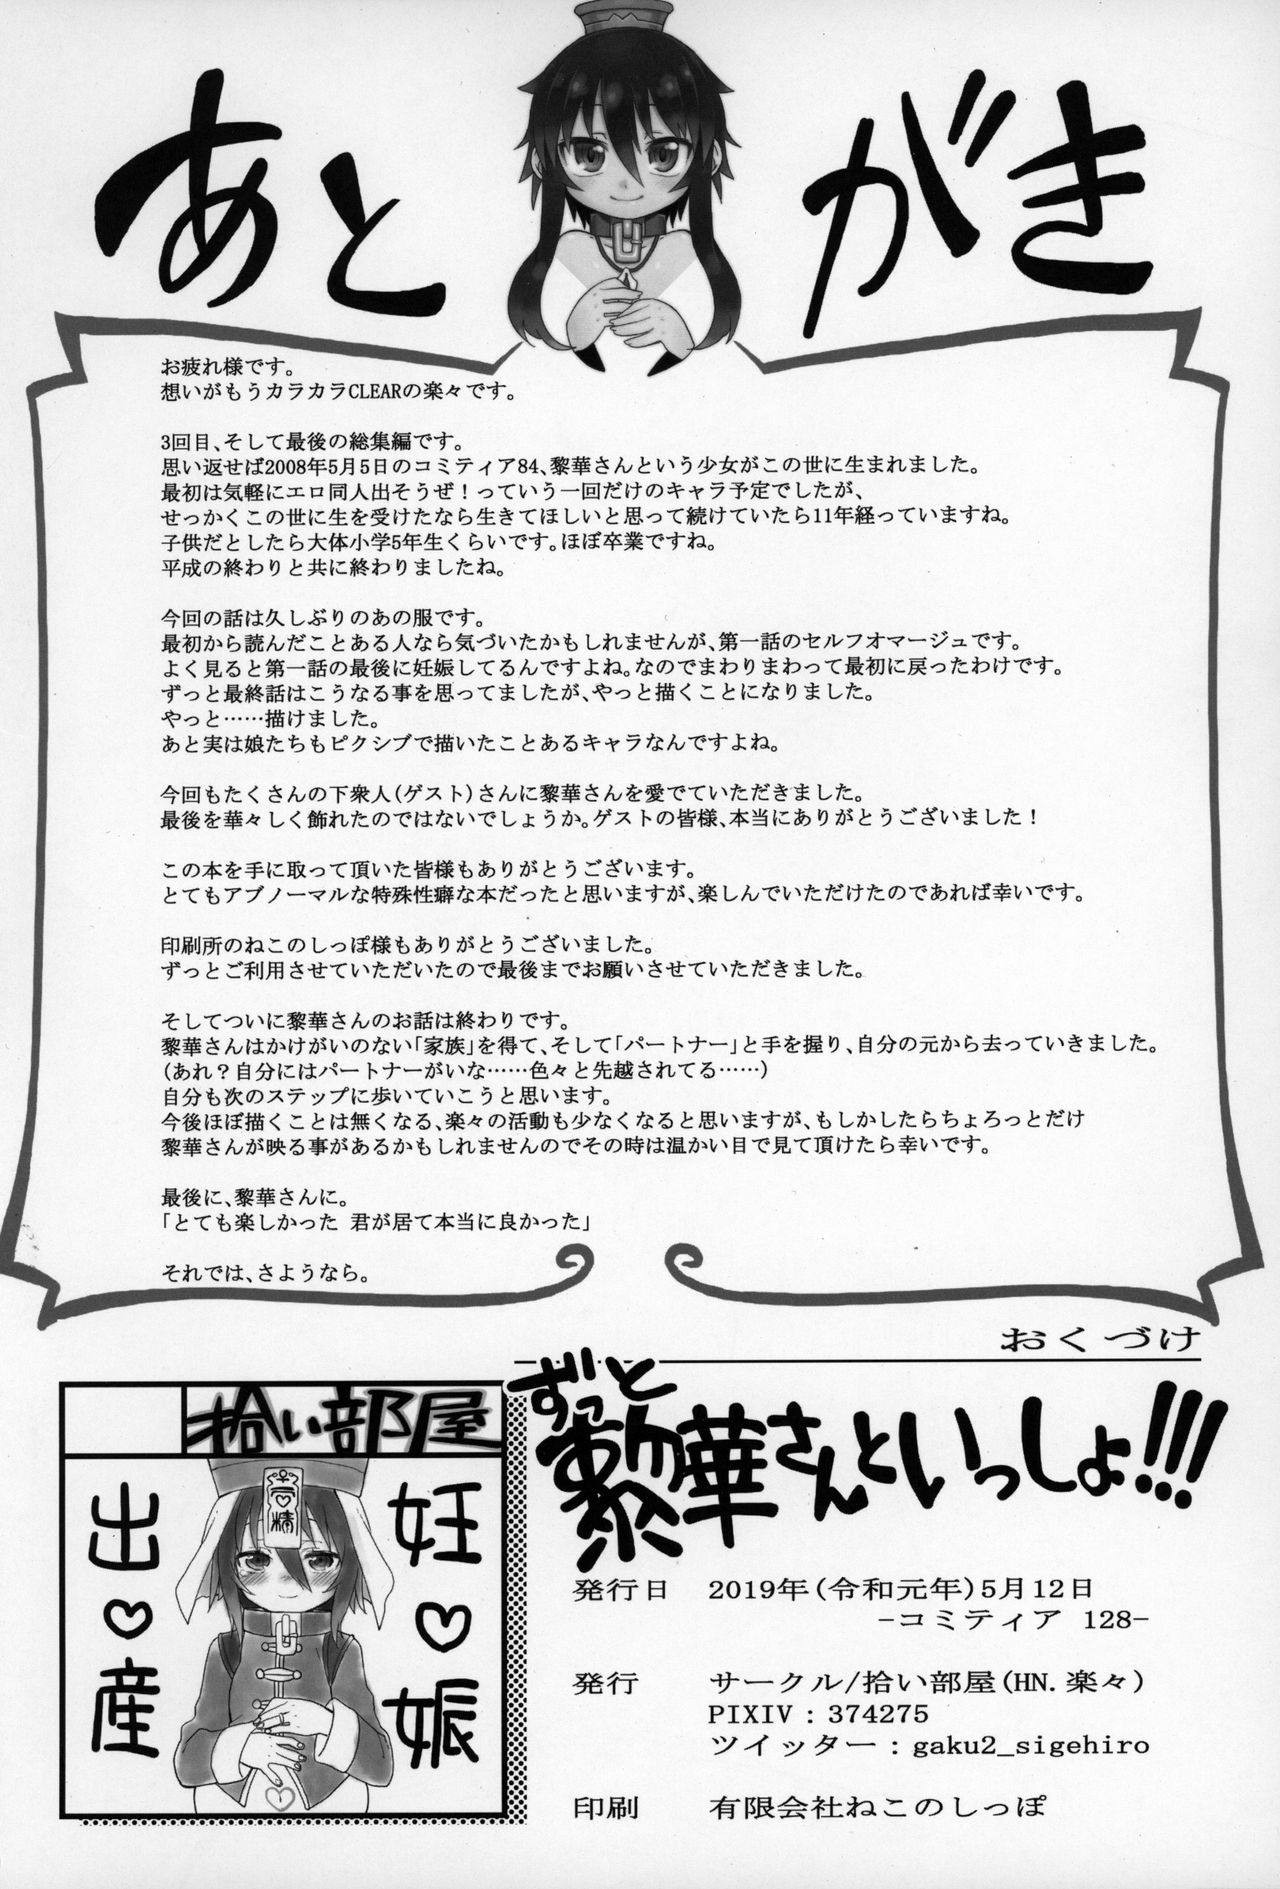 あとがき
お疲れ様です。
想いがもうカラカラCLEARの楽々です。
3回目、そして最後の総集編です。
思い返せば2008年5月5日のコミティア84、黎華さんという少女がこの世に生まれました。
最初は気軽にエロ同人出そうぜ！っていう一回だけのキャラ予定でしたが、
せっかくこの世に生を受けたなら生きてほしいと思って続けていたら11年経っていますね。
子供だとしたら大体小学5年生くらいです。ほぼ卒業ですね。
平成の終わりと共に終わりましたね。
今回の話は久しぶりのあの服です。
最初から読んだことある人なら気づいたかもしれませんが、第一話のセルフオマージュです。
よく見ると第一話の最後に妊娠してるんですよね。なのでまわりまわって最初に戻ったわけです。
ずっと最終話はこうなる事を思ってましたが、やっと描くことになりました。
やっと……描けました。
あと実は娘たちもピクシブで描いたことあるキャラなんですよね。
今回もたくさんの下衆人(ゲスト)さんに黎華さんを愛でていただきました。
最後を華々しく飾れたのではないでしょうか。ゲストの皆様、本当にありがとうございました！
この本を手に取って頂いた皆様もありがとうございます。
とてもアブノーマルな特殊性癖な本だったと思いますが、楽しんでいただけたのであれば幸いです。
印刷所のねこのしっぽ様もありがとうございました。
ずっとご利用させていただいたので最後までお願いさせていただきました。
そしてついに黎華さんのお話は終わりです。
黎華さんはかけがいのない「家族」を得て、そして「パートナー」と手を握り、自分の元から去っていきました。
(あれ？自分にはパートナーがいな……色々と先越されてる……)
自分も次のステップに歩いていこうと思います。
今後ほぼ描くことは無くなる、楽々の活動も少なくなると思いますが、もしかしたらちょろっとだけ
黎華さんが映る事があるかもしれませんのでその時は温かい目で見て頂けたら幸いです。
最後に、黎華さんに。
「とても楽しかった 君が居て本当に良かった」
それでは、さようなら。
おくづけ
ずっと
黎華さんといっしょ!!!
発行日 2019年(令和元年)5月12日
-コミティア 128-
発行 サークル/拾い部屋(HN.楽々)
PIXIV : 374275
ツイッター : gaku2_sigehiro
印刷 有限会社ねこのしっぽ
拾い部屋
妊♡娠
出♡産